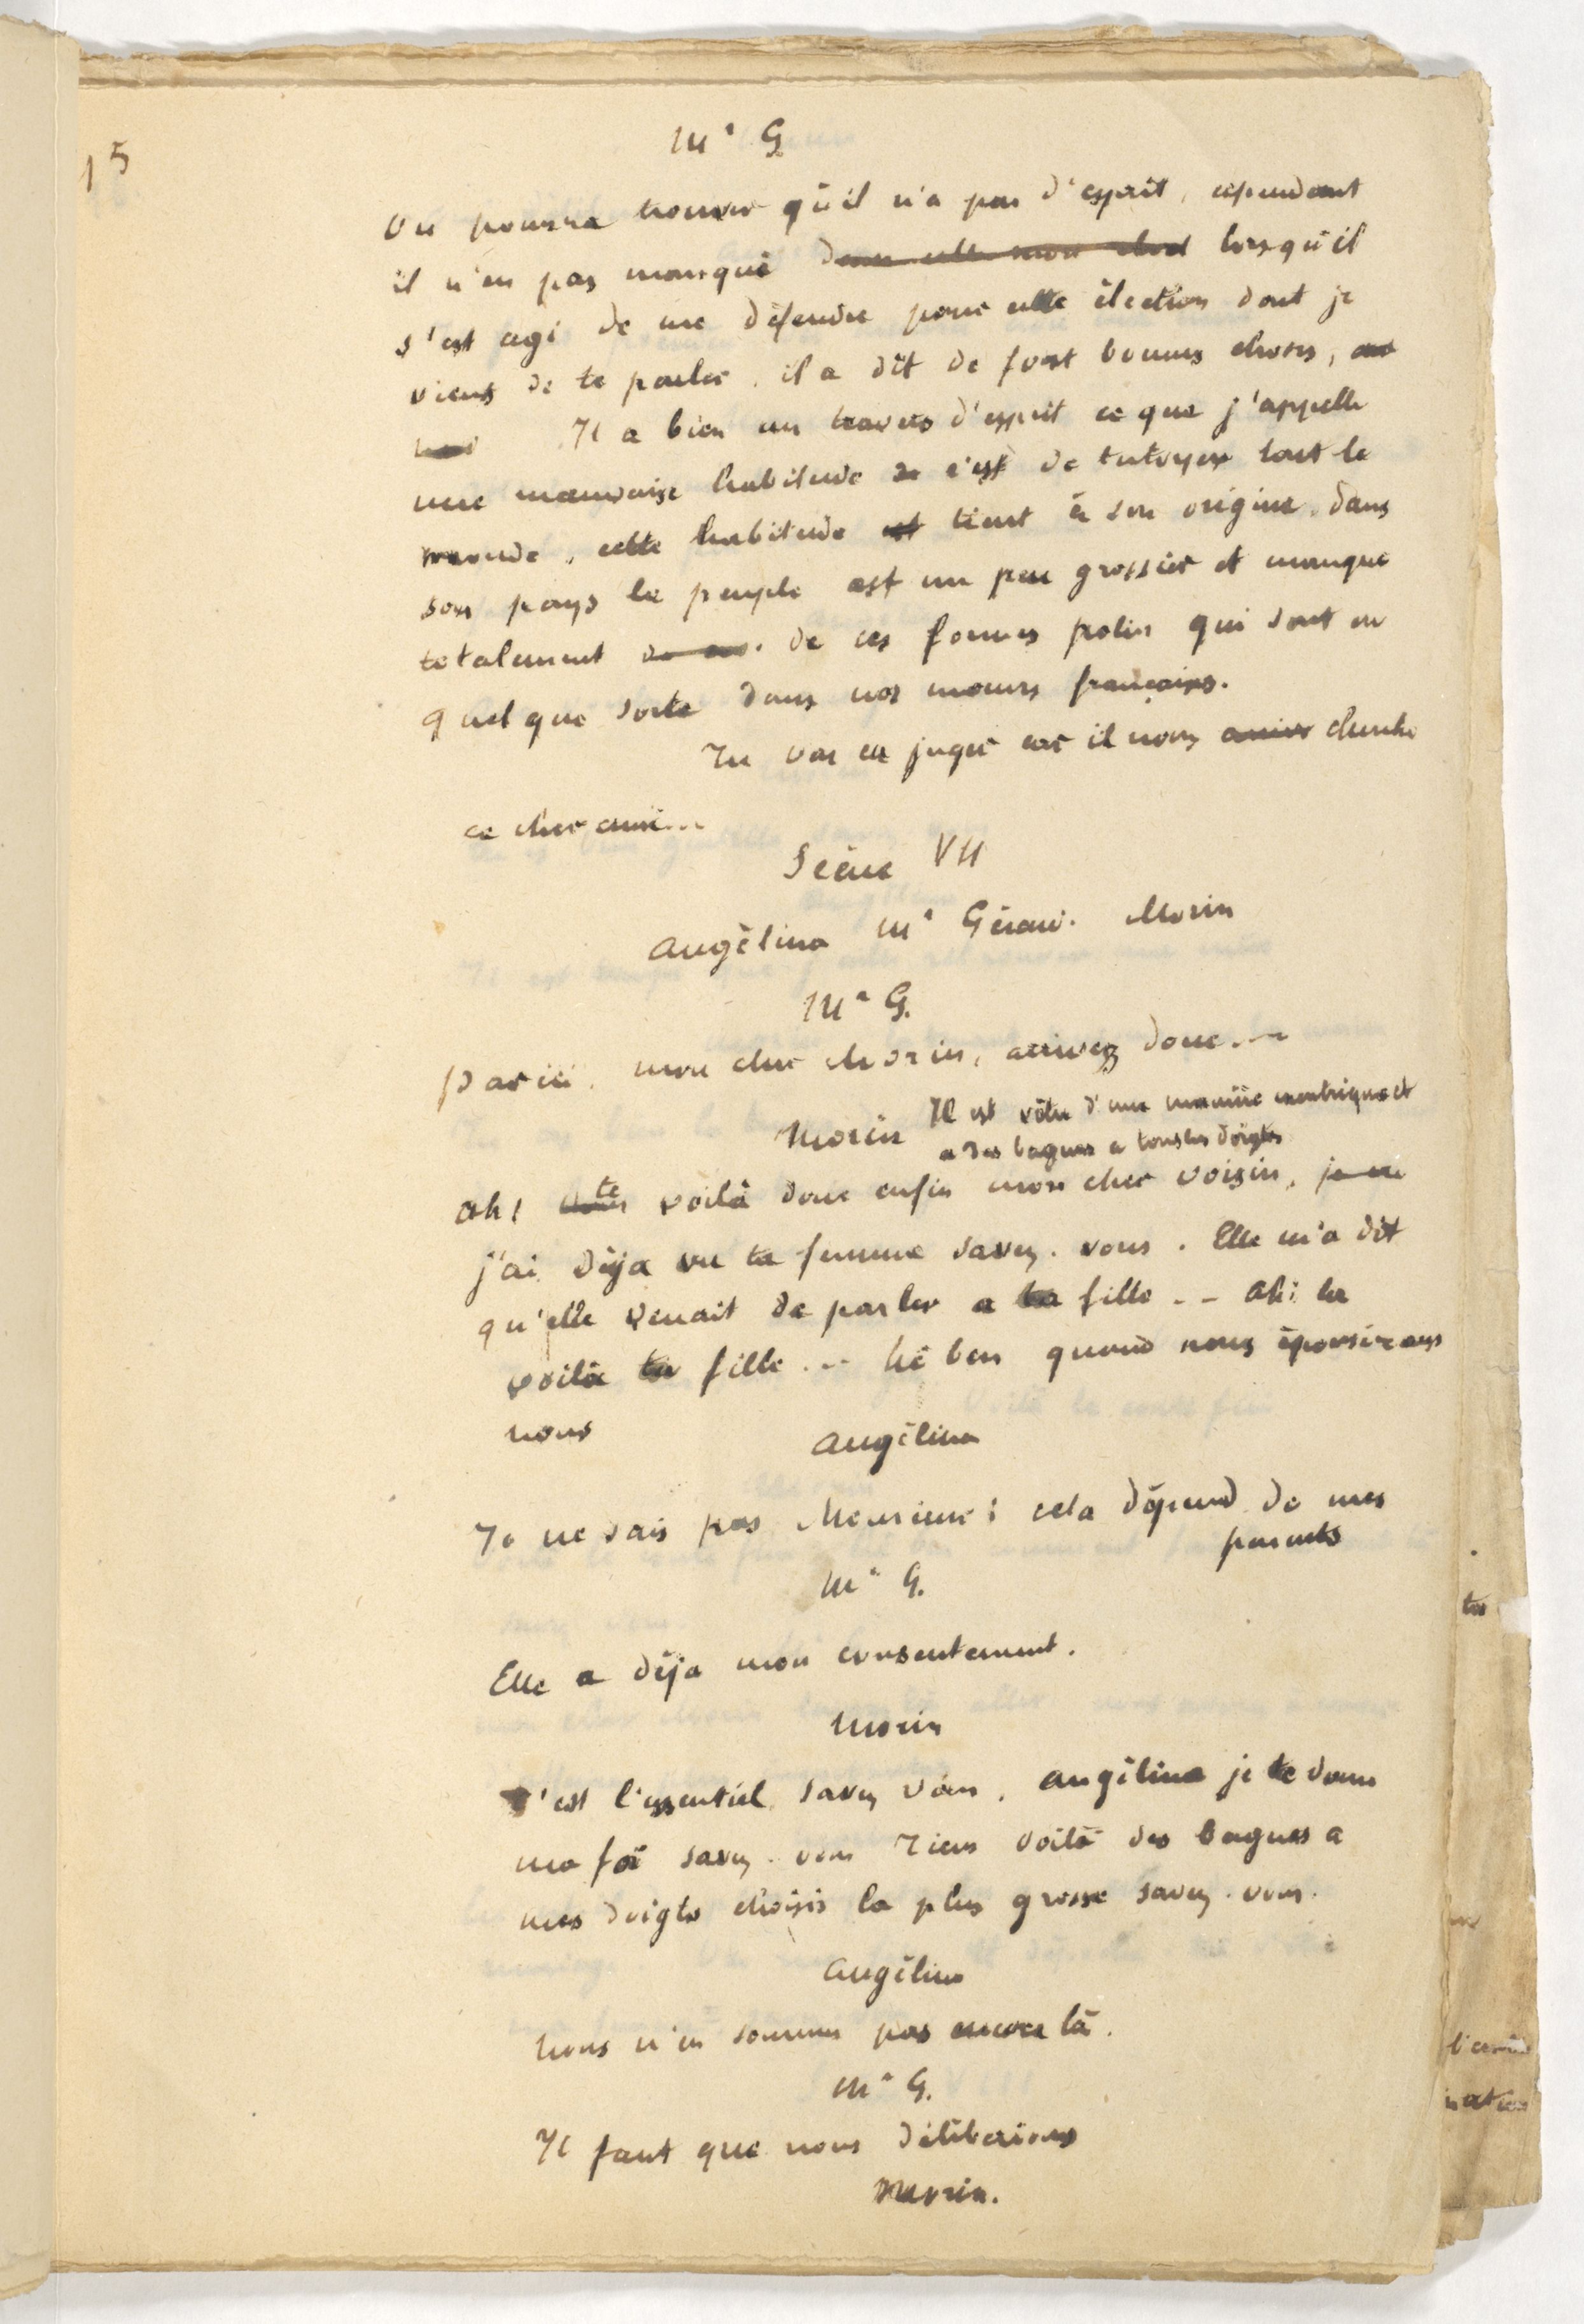 15
Mr G
On pourra trouver qu'il n'a pas d'esprit, cependant
il n'en pas manqué lorsqu'il
s'est agi de me défendre pour cette élection dont je
viens de te parler. il a dit de fort bonnes choses,
Il a bien un travers d'esprit ce que j'appelle
une mauvaise habitude c'est de tutoyer tout le
monde, cette habitude tient à son origine. dans
son pays le peuple est un peu grossier et manque
totalement de ces formes polies qui sont en
quelque sorte dans nos moeurs françaises.
Tu vas en juger car il nous cherche
ce cher ami...
Scène VII
Angélina Mr Géraud. Morin
Mr G.
Par ici, mon cher Morin, arrivez donc...
Morin Il est vêtu d'une manière excentrique et
a des bagues a tous les doigts
Ah! te voilà donc enfin mon cher voisin,
j'ai déja vu ta femme savez-vous. Elle m'a dit
qu'elle venait de parler a ta fille -- Ah! la
voilà ta fille ... hé ben quand nous épouserons
nous
Angélina
Je ne sais pas Monsieur; cela dépend de mes
parents
Mr G.
Elle a déja mon consentement.
Morin
C'est l'essentiel savez vous. Angélina je te donne
ma foi savez-vous Tiens voilà des bagues a
mes doigts choisis la plus grosse savez-vous.
Angélina
Nous n'en sommes pas encore là.
Mr G.
Il faut que nous délibérions
Morin.